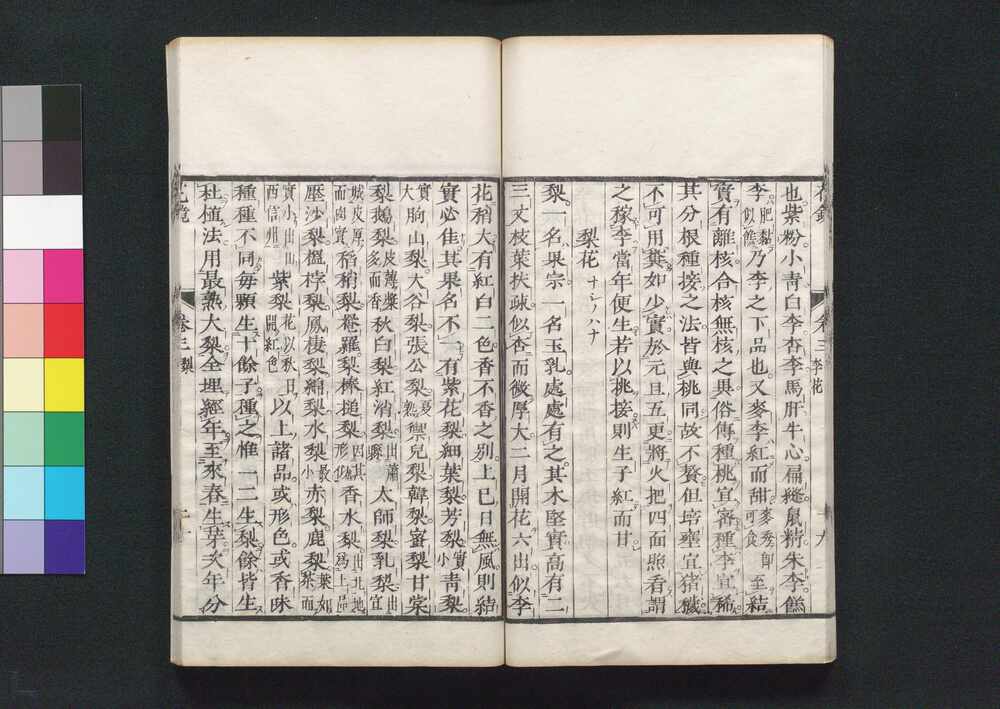 也紫粉小青白李杏李馬肝牛心扁縫鼠精朱李僬
李肥黏似僬乃李之下品也又麥李紅而甜麥秀即可食至結
實有離核合核無核之異俗傳種桃宜審種李宜稀
其分根種接之法皆與桃同故不贅但培壅宜猪穢
不可用糞如少實於元旦五更將火把四面照看謂
之稼李當年便生若以桃接則生子紅而甘
梨花
梨一名果宗一名玉乳處處有之其木堅實高有二
三丈枝葉扶疎似杏而微厚大二月開花六出似李
卷三 李花 九
花稍大有紅白二色香不香之別上巳日無風則結
實必佳其果名不一有紫花梨細葉梨芳梨實小青梨
實大朐山梨大谷梨張公梨夏熟禦兒梨韓梨蜜梨甘棠
梨鵝梨皮薄漿多而香秋白梨紅消梨出蕭縣太師梨乳梨出宣
城皮厚而肉實稻稍梨菴羅梨棒搥梨因其形似香水梨出北地為上品
壓沙梨榲桲梨鳳棲梨綿梨水梨最小赤梨鹿梨葉如茶而
實小出山西信州紫梨花以秋日開紅色以上諸品或形色或香味
種種不同每顆生十餘子種之惟一二生梨餘皆生
杜植法用最熟大梨全埋經年至來春生芽次年分
花鏡 卷三 梨 十